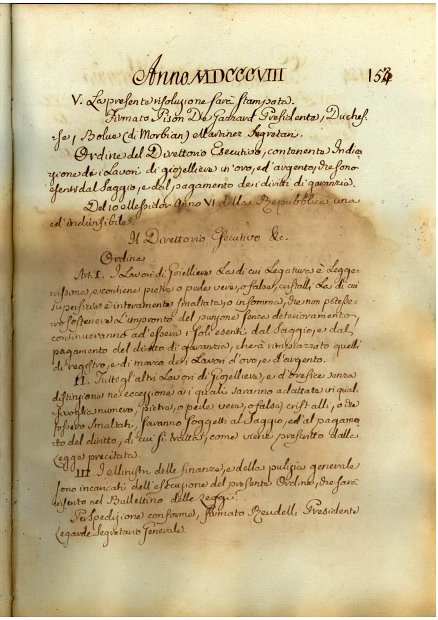 Anno MDCCCVIII 153
V. La presente risoluzione sarà stampata.
Firmato Pison De Galland Presidente, Duches-
se, Bolue (di Morbian) e Martiner Segretari.
Ordine del Direttorio Esecutivo, contenente Indica-
zione de i Lavori di gioiellieve in'oro, ed'argento, che sono
esenti dal Saggio, e dal pagamento de i diritti di garanzia.
Del 10 Messidor Anno VI. della Repubblica una
ed'indivisibile.
Il Direttorio Esecutivo &c.
Ordina
Art. I. I Lavori di Goiellieve La di cui Legatura è Legge-
rissima, e contiene pietre o perle vere, o false, cristalli, La di cui
superficie è interamente smaltata, o insomma, che non potesse-
ro sostenere L'impronto del punzone senza deterioramento,
continueranno ad essere i soli esenti dal Saggio, e dal
pagamento del diritto di garanzia, che rimpiazzato quelli
di registro, e di marco de i Lavori d'oro, e d'argento.
II. Tutti gl'altri Lavori di Goiellieve, e d'orefice senza
distinzione ne eccezione a i quali saranno adattate in qual-
sivoglia numero, pietre, o perle vere, o false, cristalli, o che
fossero smaltati, saranno soggetti al Saggio, ed al pagamen-
to del diritto, di cui si tratta, come viene prescritto dalla
Legge precitata.
III. I Ministri delle finanze, e della pulizia generale
sono incaricati dell'esecuzione del presente Ordine, che sarà
inserto nel Bullettino delle Leggi.
Per spedizione conforme, firmato Reudell, Presidente
Legarde Segretario Generale.